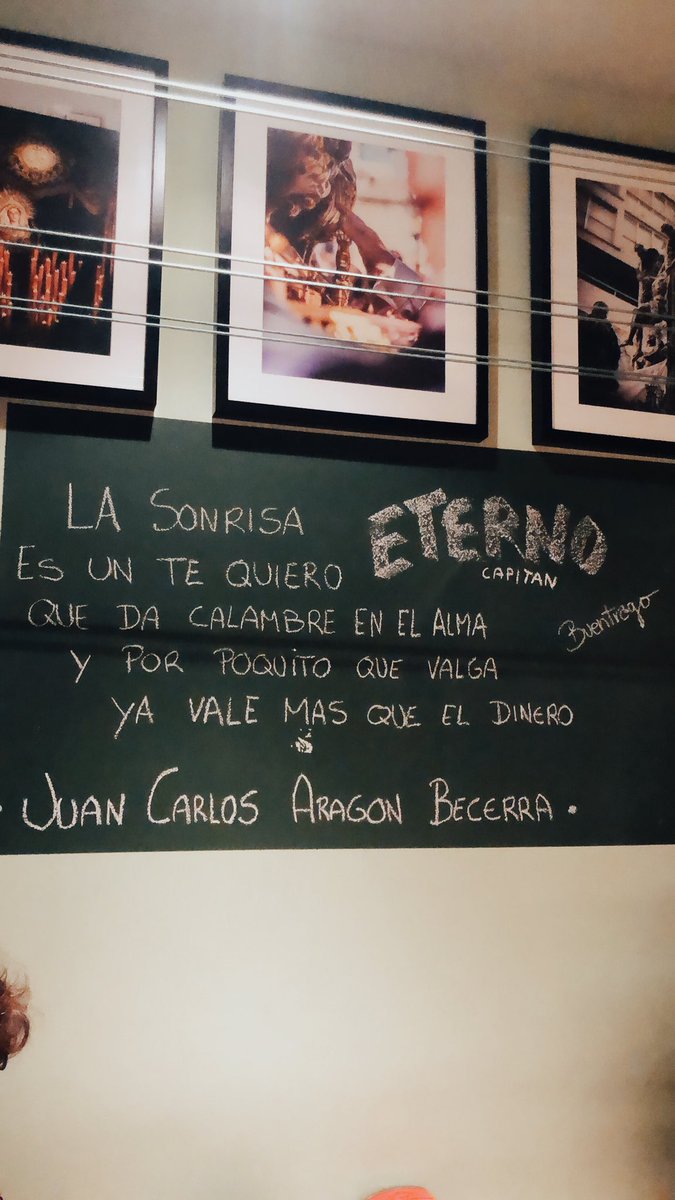 LA SONRISA
ES UN TE QUIERO
QUE DA CALAMBRE EN EL ALMA
Y POR POQUITO QUE VALGA
YA VALE MAS QUE EL DINERO
ETERNO
CAPITAN
Buentrago
· JUAN CARLOS ARAGON BECERRA ·